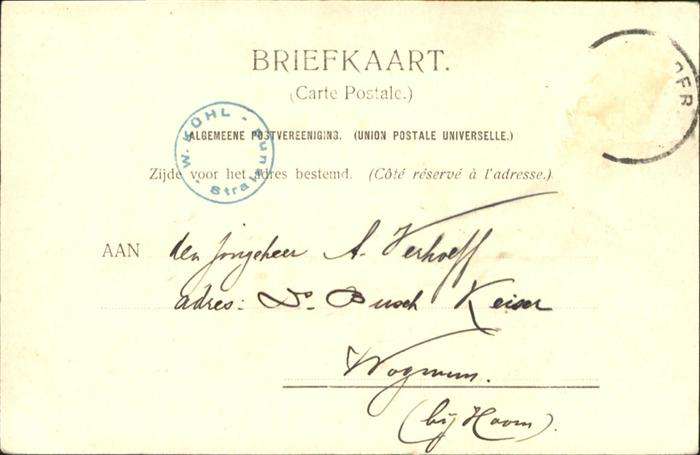 BRIEFKAART.
(Carte Postale.)
ALGEMEENE POSTVEREENIGING. (UNION POSTALE UNIVERSELLE.)
Zijde voor het adres bestemd. (Côté réservé à l'adresse.)
W. KOHL
Stralsund
AAN den jongeheer A. Verhoeff
adres: Ds. Busch Keiser
Wognum.
(bij Hoorn).